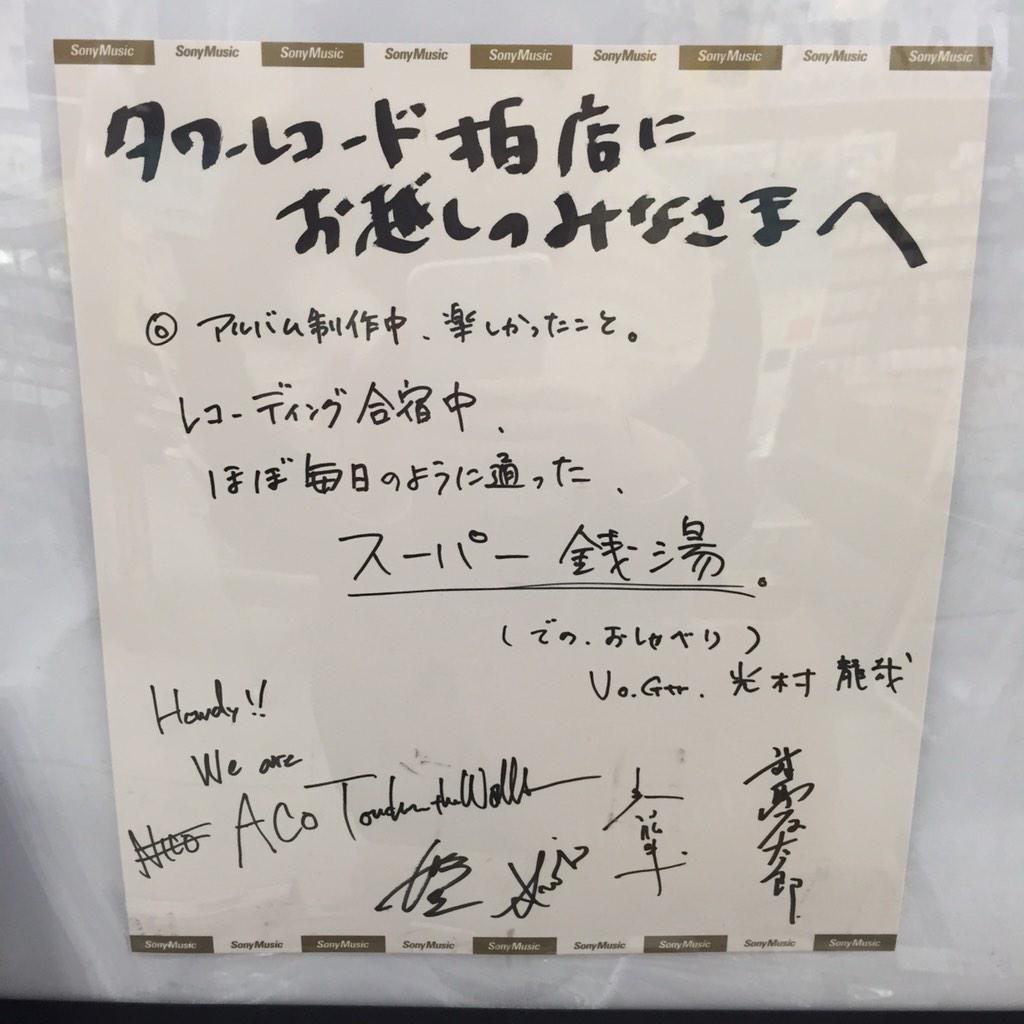 SonyMusic SonyMusic SonyMusic SonyMusic SonyMusic SonyMusic SonyMusic SonyMusic SonyMusic
タワーレコード柏店に
お越しのみなさまへ
◎ アルバム制作中、楽しかったこと。
レコーディング合宿中、
ほぼ毎日のように通った、
スーパー銭湯。
(での、おしゃべり)
Vo.Gtr. 光村龍哉
Howdy!!
We are
NICO ACO Touches the Walls
対馬祥太郎
SonyMusic SonyMusic SonyMusic SonyMusic SonyMusic SonyMusic SonyMusic SonyMusic SonyMusic